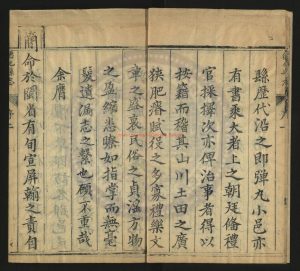 縣歷代沿之即彈丸小邑亦
有書乘大者上之朝廷備禮
官採擇次亦俾治事者得以
按籍而稽其山川土田之廣
狹肥瘠賦役之多寡禮樂文
章之盛衰民俗之貞淫方物
之盈縮悉瞭如指掌而無毫
髮遺漏志之繫也顧不重哉
余膺
簡命於閩省有旬宣屏翰之責自